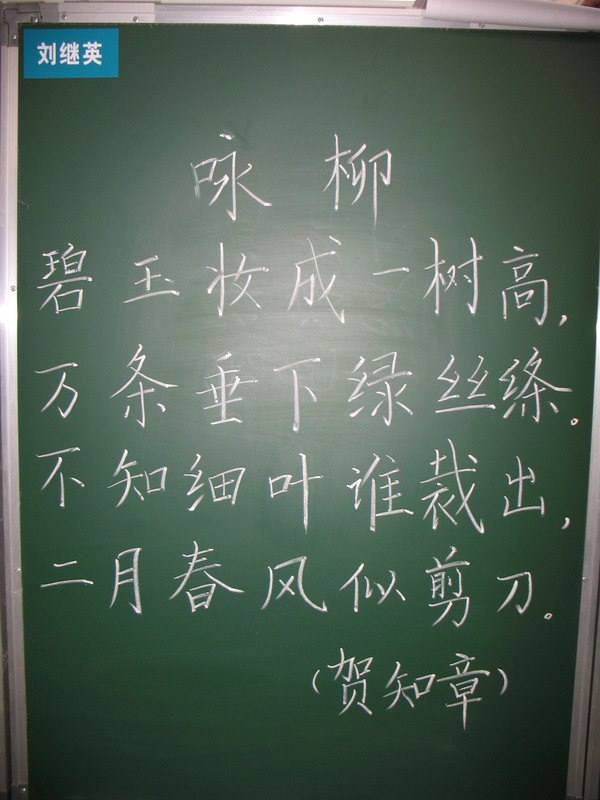 刘继英
咏柳
碧玉妆成一树高,
万条垂下绿丝绦。
不知细叶谁裁出,
二月春风似剪刀。
(贺知章)